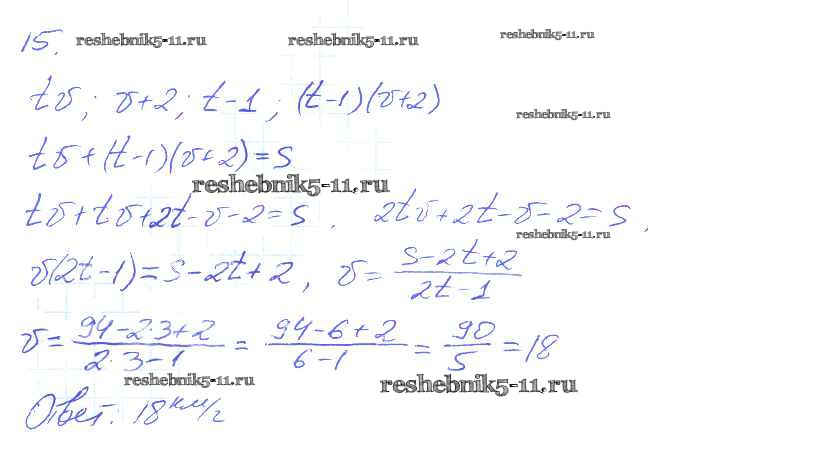 15. reshebnik5-11.ru reshebnik5-11.ru reshebnik5-11.ru
tv; v+2; t-1; (t-1)(v+2)
reshebnik5-11.ru
tv+(t-1)(v+2)=S
reshebnik5-11.ru
tv+tv+2t-v-2=S, 2tv+2t-v-2=S,
reshebnik5-11.ru
v(2t-1)=S-2t+2, v=(S-2t+2)/(2t-1)
v=(94-2·3+2)/(2·3-1)=(94-6+2)/(6-1)=90/5=18
reshebnik5-11.ru reshebnik5-11.ru
Ответ: 18 км/г